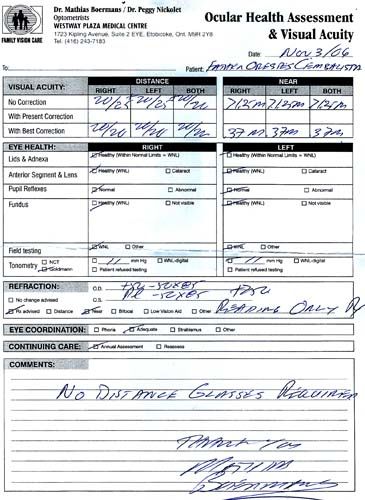 FAMILY VISION CARE
Dr. Mathias Boermans / Dr. Peggy Nickolet
Optometrists
WESTWAY PLAZA MEDICAL CENTRE
1723 Kipling Avenue, Suite 2 EYE, Etobicoke, Ont. M9R 2Y8
Tel: (416) 243-7183
Ocular Health Assessment
& Visual Acuity
Date: Nov 3/06
To
Patient:
DISTANCE NEAR
VISUAL ACUITY: RIGHT LEFT BOTH RIGHT LEFT BOTH
No Correction 20/25
With Present Correction
With Best Correction .37m .37m .37m
EYE HEALTH: RIGHT LEFT
Lids & Adnexa Healthy (Within Normal Limits = WNL) Healthy (Within Normal Limits = WNL)
Anterior Segment & Lens Healthy (WNL) Cataract Healthy (WNL) Cataract
Pupil Reflexes Normal Abnormal Normal Abnormal
Fundus Healthy (WNL) Not visible Healthy (WNL) Not visible
Field testing WNL Other WNL Other
Tonometry NCT 11 mm Hg WNL-digital 11 mm Hg WNL-digital
Goldmann Patient refused testing Patient refused testing
REFRACTION: O.D.
No change advised O.S.
Rx advised Distance Near Bifocal Low Vision Aid Other READING ONLY Rx
EYE COORDINATION: Phoria Adequate Strabismus Other
CONTINUING CARE: Annual Assessment Reassess
COMMENTS:
NO DISTANCE GLASSES REQUIRED
THANK YOU